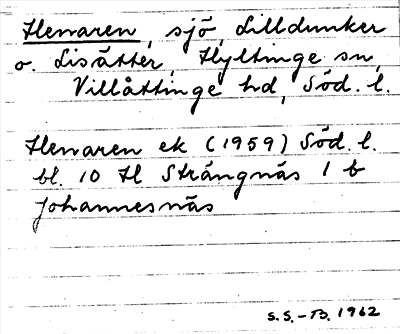 Henaren, sjö, Lilldunker
o. Lisätter, Hyltinge sn,
Villåttinge hd, Söd. l.
Henaren ek (1959) Söd. l.
bl. 10 H Strängnäs 1 b
Johannesnäs
S.S.-B. 1962